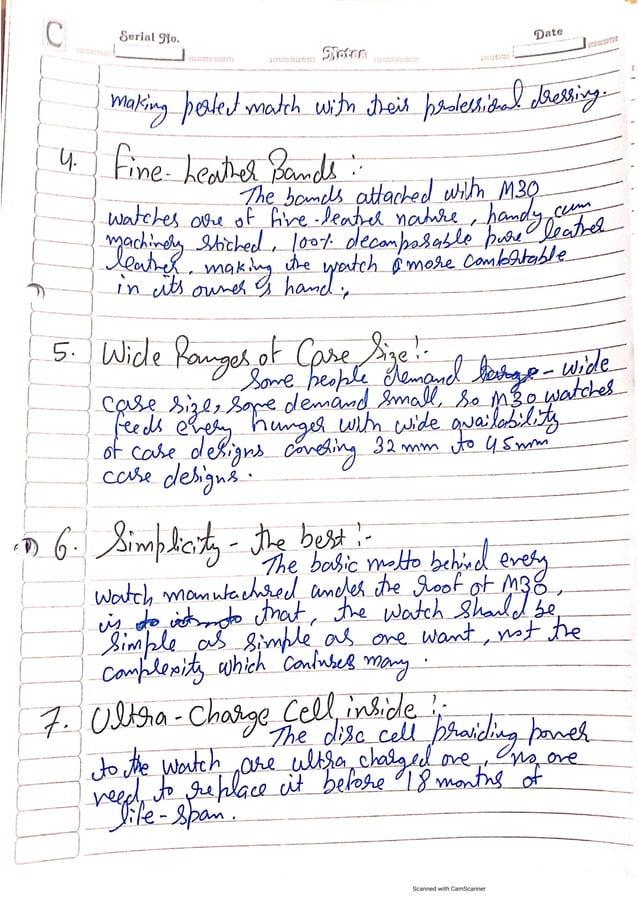 C
Serial No.
Date
Notes
making perfect match with their professional dressing.
4. Fine-Leather Bands :-
The bands attached with M30
watches are of fine-leather nature, handy cum
machinery stiched, 100% decomposable pure leather
leather, making the watch more comfortable
in its owner's hand.
5. Wide Ranges of Case Size :-
Some people demand large - wide
case size, some demand small, so M30 watches
feeds every hunger with wide availability
of case designs covering 32 mm to 45 mm
case designs.
6. Simplicity - the best :-
The basic motto behind every
watch manufactured under the roof of M30,
is that, the watch should be
simple as simple as one want, not the
complexity which confuses many.
7. Ultra-Charge Cell inside :-
The disc cell providing power
to the watch are ultra charged one, no one
need to replace it before 18 months of
life-span.
Scanned with CamScanner